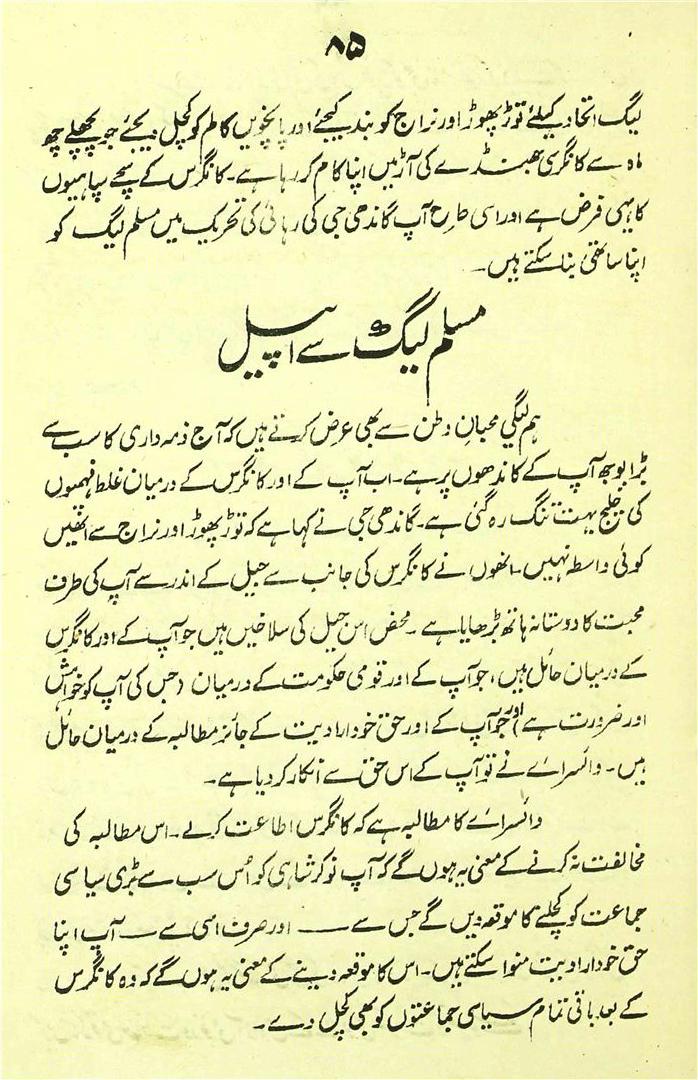 ۸۵
لیگ اتحاد کیلئے توڑ پھوڑ اور نراج کو بند کیجئے اور پانچویں کالم کو کچل دیجئے جو پچھلے چھ
ماہ سے کانگرسی جھنڈے کی آڑ میں اپنا کام کر رہا ہے۔ کانگرس کے سچے سپاہیوں
کا یہی فرض ہے اور اسی طرح آپ گاندھی جی کی رہائی کی تحریک میں مسلم لیگ کو
اپنا ساتھی بنا سکتے ہیں۔
مسلم لیگ سے اپیل
ہم لیگی محبانِ وطن سے بھی عرض کرتے ہیں کہ آج ذمہ داری کا سب سے
بڑا بوجھ آپ کے کاندھوں پر ہے۔ اب آپ کے اور کانگرس کے درمیان غلط فہمیوں
کی خلیج بہت تنگ رہ گئی ہے۔ گاندھی جی نے کہا ہے کہ توڑ پھوڑ اور نراج سے انھیں
کوئی واسطہ نہیں۔ انھوں نے کانگرس کی جانب سے جیل کے اندر سے آپ کی طرف
محبت کا دوستانہ ہاتھ بڑھایا ہے۔ محض اس جیل کی سلاخیں ہیں جو آپ کے اور کانگرس
کے درمیان حائل ہیں، جو آپ کے اور قومی حکومت کے درمیان (جس کی آپ کو خواہش
اور ضرورت ہے) اور جو آپ کے اور حق خود ارادیت کے جائز مطالبہ کے درمیان حائل
ہیں۔ وائسرائے نے تو آپ کے اس حق سے انکار کر دیا ہے۔
وائسرائے کا مطالبہ ہے کہ کانگرس اطاعت کرلے۔ اس مطالبہ کی
مخالفت نہ کرنے کے معنی یہ ہوں گے کہ آپ نوکر شاہی کو اُس سب سے بڑی سیاسی
جماعت کو کچلنے کا موقعہ دیں گے جس سے —— اور صرف اسی سے —— آپ اپنا
حق خود ارادیت منوا سکتے ہیں۔ اس کا موقعہ دینے کے معنی یہ ہوں گے کہ وہ کانگرس
کے بعد باقی تمام سیاسی جماعتوں کو بھی کچل دے۔